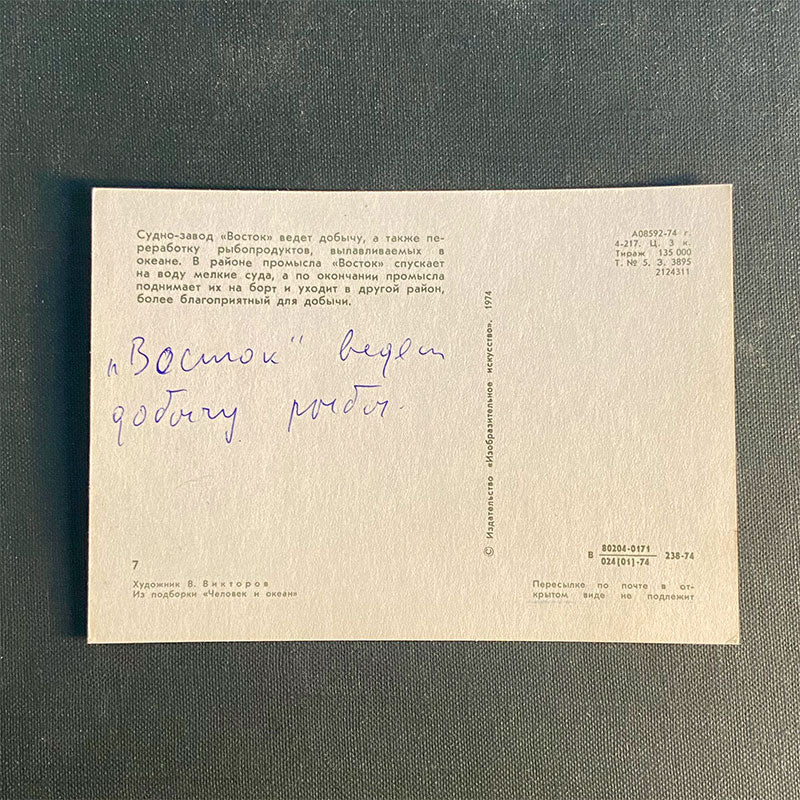 Судно-завод «Восток» ведет добычу, а также пе-
реработку рыбопродуктов, вылавливаемых в
океане. В районе промысла «Восток» спускает
на воду мелкие суда, а по окончании промысла
поднимает их на борт и уходит в другой район,
более благоприятный для добычи.
„Восток" ведет
добычу рыбы.
7
Художник В. Викторов
Из подборки «Человек и океан»
© Издательство «Изобразительное искусство». 1974
А08592-74 г.
4-217. Ц. 3 к.
Тираж 135 000
Т. № 5. З. 3895
2124311
В 80204-0171 238-74
024(01)-74
Пересылке по почте в от-
крытом виде не подлежит